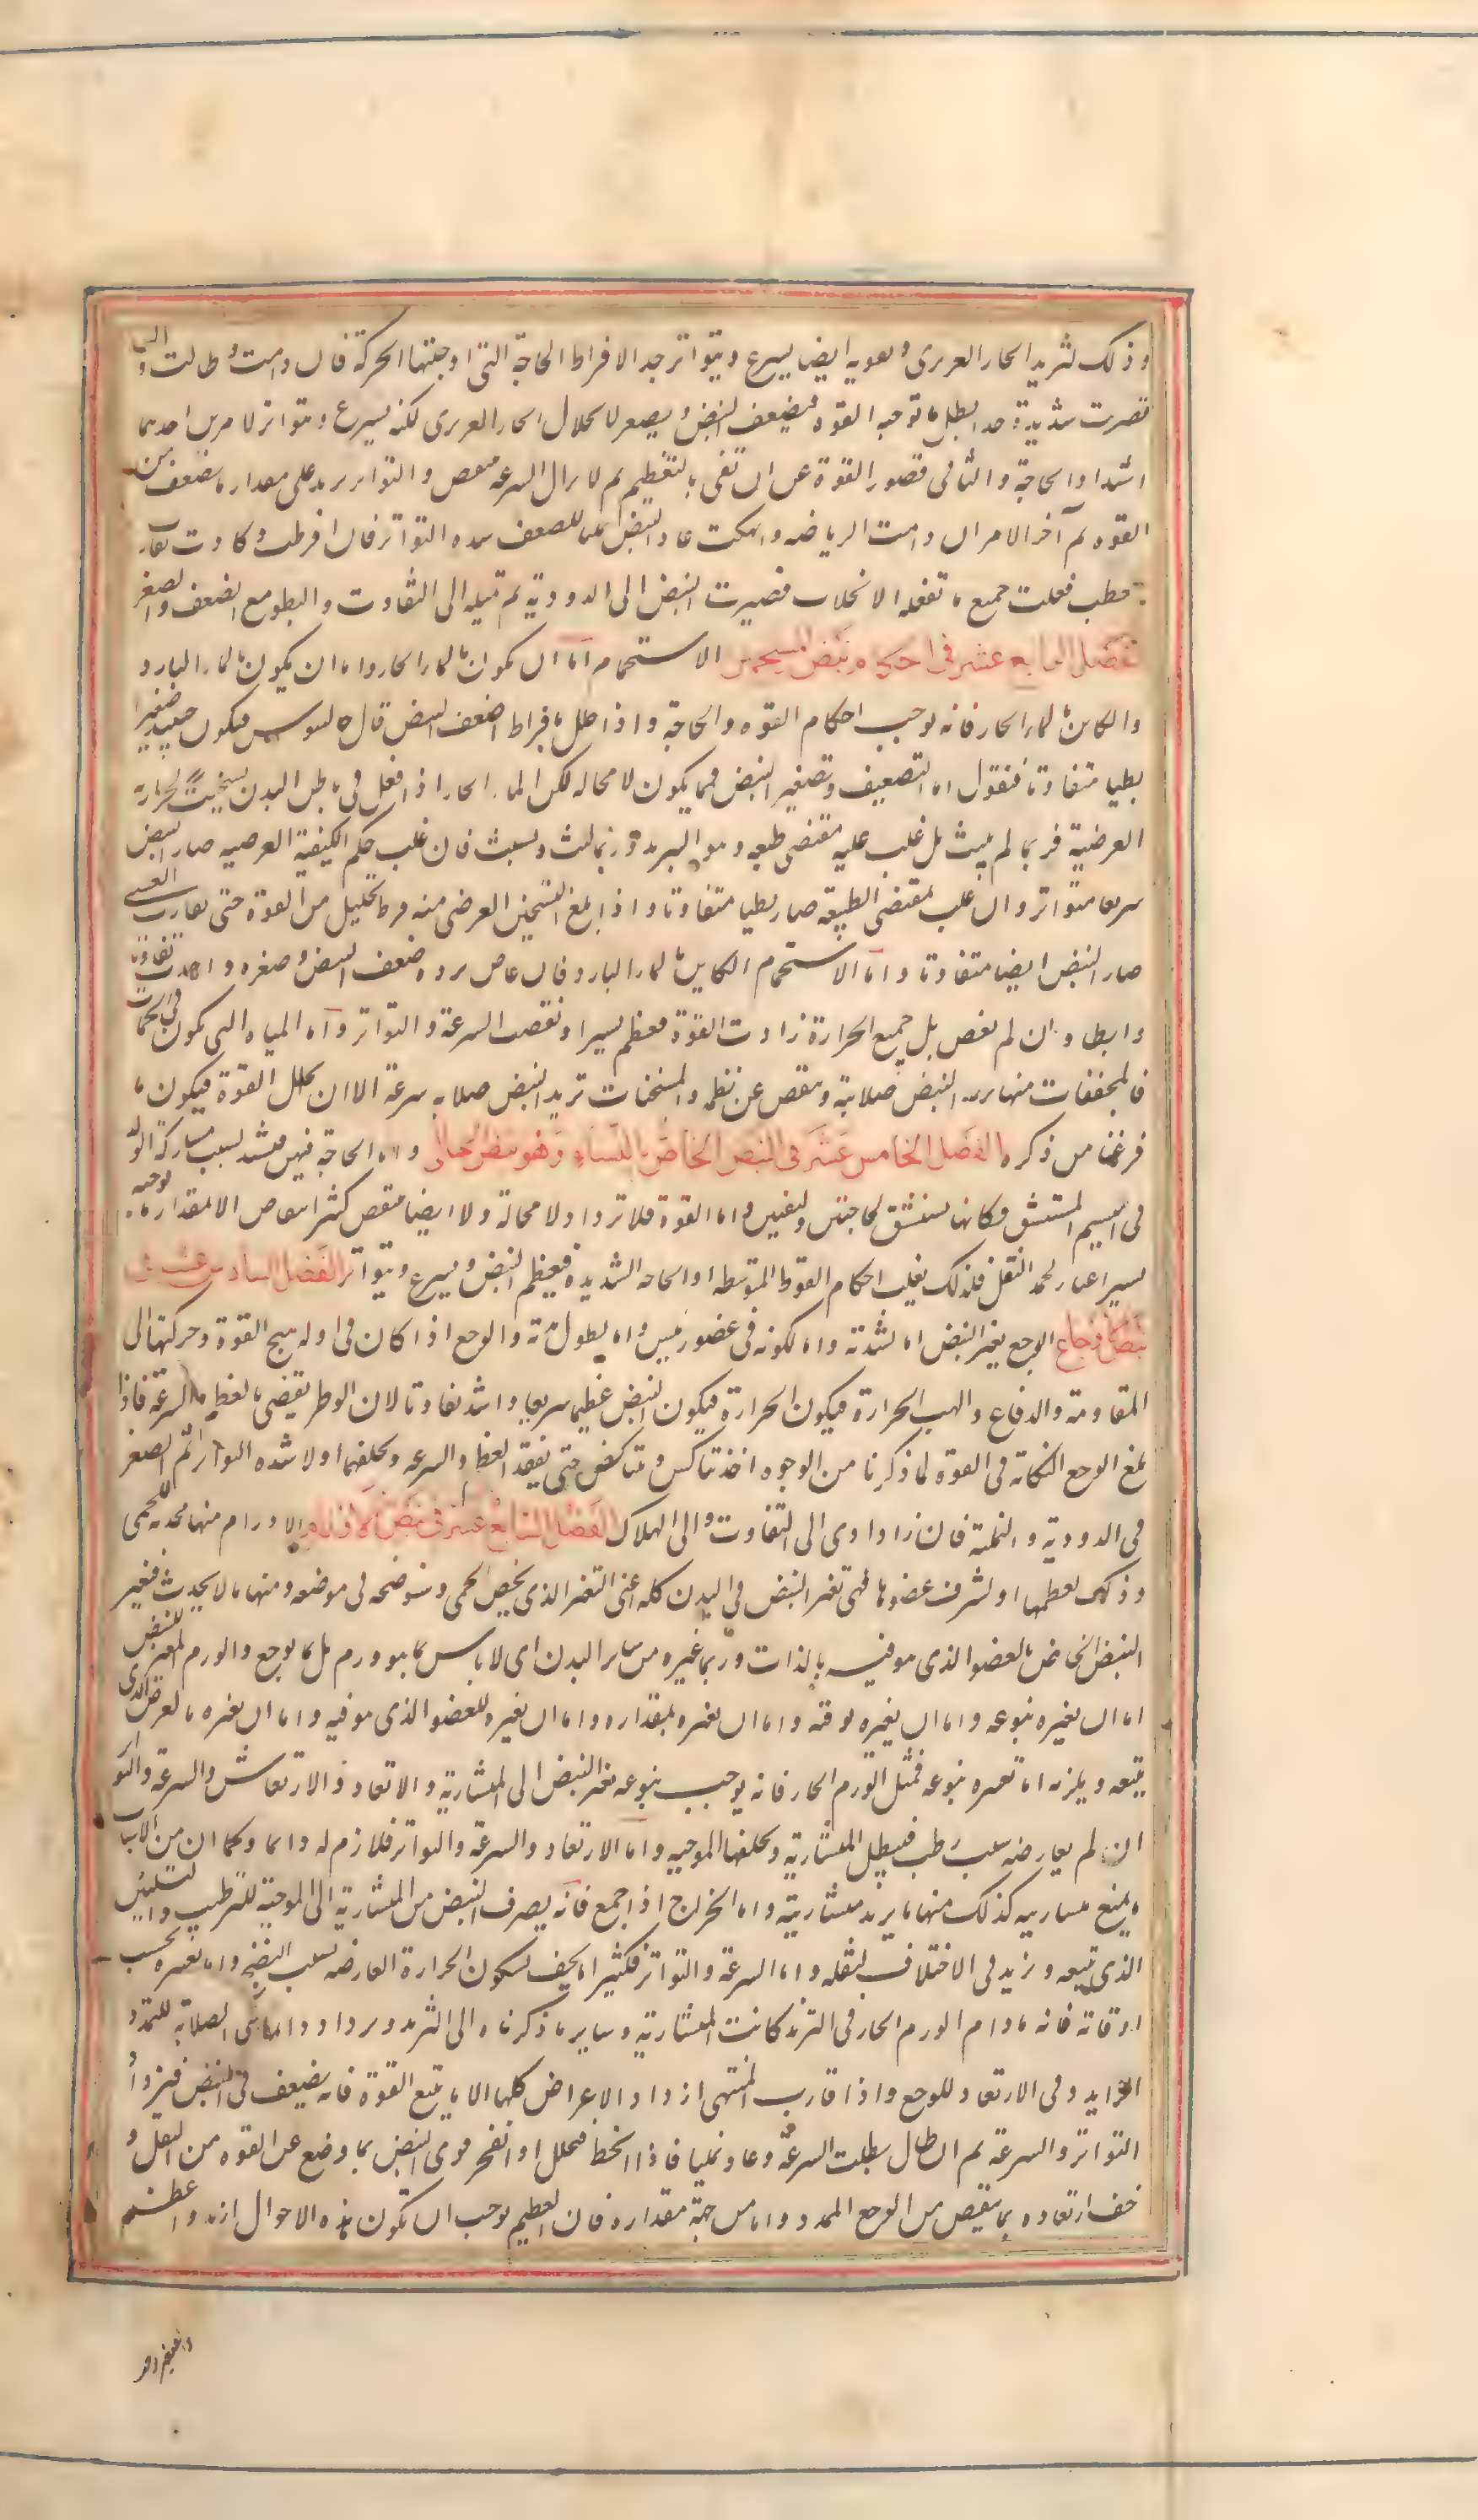 وذلك لتزيد الحار الغريزى وتقويه ايضا يسرع ويتواتر جدا لافراط الحاجة التى اوجبتها الحركة فان دامت وطالت او
قصرت شديدة جدا بطل ما توجبه القوة فيضعف النبض ويصغر لانحلال الحار الغريزى لكنه يسرع ويتواتر لامرين احدهما
اشتداد الحاجة والثانى قصور القوة عن ان تفى بالتعظيم ثم لا يزال السرعة تنقص والتواتر يزيد على مقدار ما يضعف من
القوة ثم آخر الامر ان دامت الرياضة وانهكت عاد النبض نمليا للضعف وشدة التواتر فان افرطت وكادت تقارب
العطب فعلت جميع ما تفعله الانحلالات فصيرت النبض الى الدودية ثم تميله الى التفاوت والبطو مع الضعف والصغر
الفصل الرابع عشر فى احكام نبض المستحمين الاستحمام اما ان يكون بالماء الحار واما ان يكون بالماء البارد
والكاين بالماء الحار فانه يوجب احكام القوة والحاجة واذا حلل بافراط اضعف النبض قال جالينوس فيكون حينئذ صغيرا
بطيا متفاوتا فنقول اما التضعيف وتصغير النبض فمما يكون لا محالة لكن الماء الحار اذا فعل فى باطن البدن تسخينا لحرارته
العرضية فربما لم يلبث بل غلب عليه مقتضى طبعه وهو التبريد وربما لبث وتشبث فان غلب حكم الكيفية العرضية صار النبض
سريعا متواترا وان غلب مقتضى الطبيعة صار بطيا متفاوتا واذا بلغ التسخين العرضى منه فرط تحليل من القوة حتى يقارب الغشى
صار النبض ايضا متفاوتا واما الاستحمام الكاين بالماء البارد فان غاص برده ضعف النبض وصغره واحدث تفاوتا
وابطاء وان لم يغص بل جمع الحرارة زادت القوة فعظم يسيرا ونقصت السرعة والتواتر واما المياه التى تكون فى الحمات
فالمجففات منها تزيد النبض صلابة وينقص عن عظمه والمسخنات تزيد النبض صلابه سرعة الا ان يحلل القوة فيكون ما
فرغنا من ذكره الفصل الخامس عشر فى النبض الخاص بالنساء وهو نبض الحبالى واما الحاجة فيهن فتشتد لسبب مشاركة الولد
فى النسيم المستنشق فكانها تستنشق لحاجتين ولنفسين واما القوة فلا تزداد لا محالة ولا ايضا تنقص كثير انتقاص الا مقدار ما يوجبه
يسير اعباء لحمل الثقل فلذلك يغلب احكام القوة المتوسطة والحاجة الشديدة فيعظم النبض ويسرع ويتواتر الفصل السادس عشر فى
نبض الاوجاع الوجع يغير النبض اما لشدته واما لكونه فى عضو رئيس واما بطول مدته والوجع اذا كان فى اوله هيج القوة وحركتها الى
المقاومة والدفاع والهب الحرارة فيكون الحرارة فيكون النبض عظيما سريعا واشد تفاوتا لان الوطر يفضى بالعظم والسرعة فاذا
بلغ الوجع النكاية فى القوة لما ذكرنا من الوجوه اخذ يتناكس ويتناقص حتى يفقد العظم والسرعة ويخلفهما اولا شدة التواتر ثم الصغر
فى الدودية والنملية فان زاد ادى الى التفاوت والى الهلاك الفصل السابع عشر فى نبض الاورام الاورام منها محدثة للحمى
وذلك لعظمها او لشرف عضوها فهى تغير النبض فى البدن كله اعنى التغير الذى يخص الحمى وسنوضحه فى موضعه ومنها ما لا يحدث فتغير
النبض الخاص بالعضو الذى هو فيه بالذات وربما غيره من سائر البدن اى لا بما هو ورم بل بما يوجع والورم المغير للنبض
اما ان يغيره بنوعه واما ان يغيره بوقته واما ان يغيره بمقداره واما ان يغيره للعضو الذى هو فيه واما ان يغيره بالعرض الذى
يتبعه ويلزمه اما تغييره بنوعه فمثل الورم الحار فانه يوجب بنوعه تغير النبض الى المنشارية والارتعاد والارتعاش والسرعة والتواتر
ان لم يعارضه سبب رطب فيبطل المنشارية ويخلفها الموجيه واما الارتعاد والسرعة والتواتر فلازم له دائما وكما ان من الاسباب
ما يمنع منشاريته كذلك منها ما يزيد منشاريته واما الخراج اذا جمع فانه يصرف النبض من المنشارية الى الموجية للترطيب والتليين
الذى يتبعه ويزيد فى الاختلاف لثقله واما السرعة والتواتر فكثيرا ما يخف لسكون الحرارة العارضة بسبب النضج واما تغيره بحسب
اوقاته فانه مادام الورم الحار فى التزيد كانت المنشارية وساير ما ذكرناه الى التزيد ويزداد دائما فى الصلابة للتمدد
الزايد وفى الارتعاد للوجع واذا قارب المنتهى ازداد الاعراض كلها الا ما يتبع القوة فانه يضعف فى النبض فيزداد
التواتر والسرعة ثم ان طال بطلت السرعة وعاد نمليا فاذا انحط فتحلل او انفجر قوى النبض بما وضع عن القوة من الثقل و
خف ارتعاده بما ينقص من الوجع الممدد واما من جهة مقداره فان العظيم يوجب ان تكون هذه الاحوال ازيد واعظم